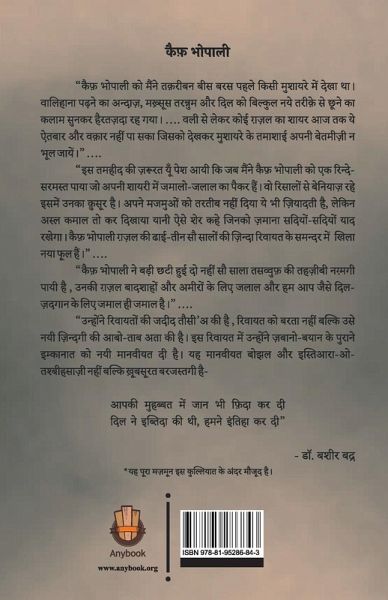 कैफ़ भोपाली
“कैफ़ भोपाली को मैंने तक़रीबन बीस बरस पहले किसी मुशायरे में देखा था।
वालिहाना पढ़ने का अन्दाज़, मख़्सूस तरन्नुम और दिल को बिल्कुल नये तरीक़े से छूने का
कलाम सुनकर हैरतज़दा रह गया। .... वली से लेकर कोई ग़ज़ल का शायर आज तक ये
ऐतबार और वक़ार नहीं पा सका जिसको देखकर मुशायरे के तमाशाई अपनी बेतमीज़ी न
भूल जायें।”....
“इस तमहीद की ज़रूरत यूँ पेश आयी कि जब मैंने कैफ़ भोपाली को एक रिन्दे-
सरमस्त पाया जो अपनी शायरी में जमालो-जलाल का पैकर हैं। वो रिसालों से बेनियाज़ रहे
इसमें उनका क़ुसूर है। अपने मजमुओं को तरतीब नहीं दिया ये भी ज़ियादती है, लेकिन
अस्ल कमाल तो कर दिखाया यानी ऐसे शेर कहे जिनको ज़माना सदियों-सदियों याद
रखेगा। कैफ़ भोपाली ग़ज़ल की ढाई-तीन सौ सालों की ज़िन्दा रिवायत के समन्दर में खिला
नया फूल हैं।”....
“कैफ़ भोपाली ने बड़ी छटी हुई दो नहीं सौ साला तसव्वुफ़ की तहज़ीबी नरमगी
पायी है , उनकी ग़ज़ल बादशाहों और अमीरों के लिए जलाल और हम आप जैसे दिल-
ज़दगान के लिए जमाल ही जमाल है।”....
“उन्होंने रिवायतों की जदीद तौसी'अ की है , रिवायत को बरता नहीं बल्कि उसे
नयी ज़िन्दगी की आबो-ताब अता की है। इस रिवायत में उन्होंने ज़बानो-बयान के पुराने
इम्कानात को नयी मानवीयत दी है। यह मानवीयत बोझल और इस्तिआरा-ओ-
तश्बीहसाज़ी नहीं बल्कि ख़ूबसूरत बरजस्तगी है-
आपकी मुहब्बत में जान भी फ़िदा कर दी
दिल ने इब्तिदा की थी, हमने इंतिहा कर दी”
- डॉ. बशीर बद्र
*यह पूरा मज़मून इस कुल्लियात के अंदर मौजूद है।
Anybook
www.anybook.org
ISBN 978-81-95286-84-3